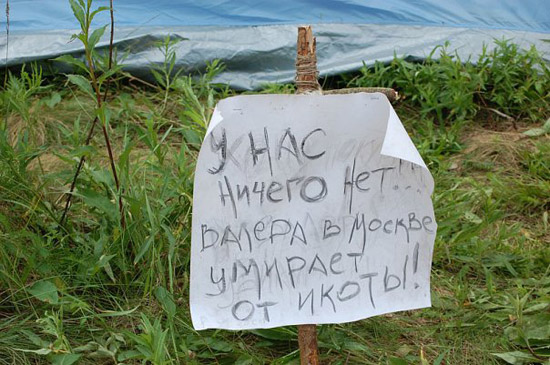 У НАС
НИЧЕГО НЕТ...
ВАЛЕРА В МОСКВЕ
УМИРАЕТ
ОТ ИКОТЫ!